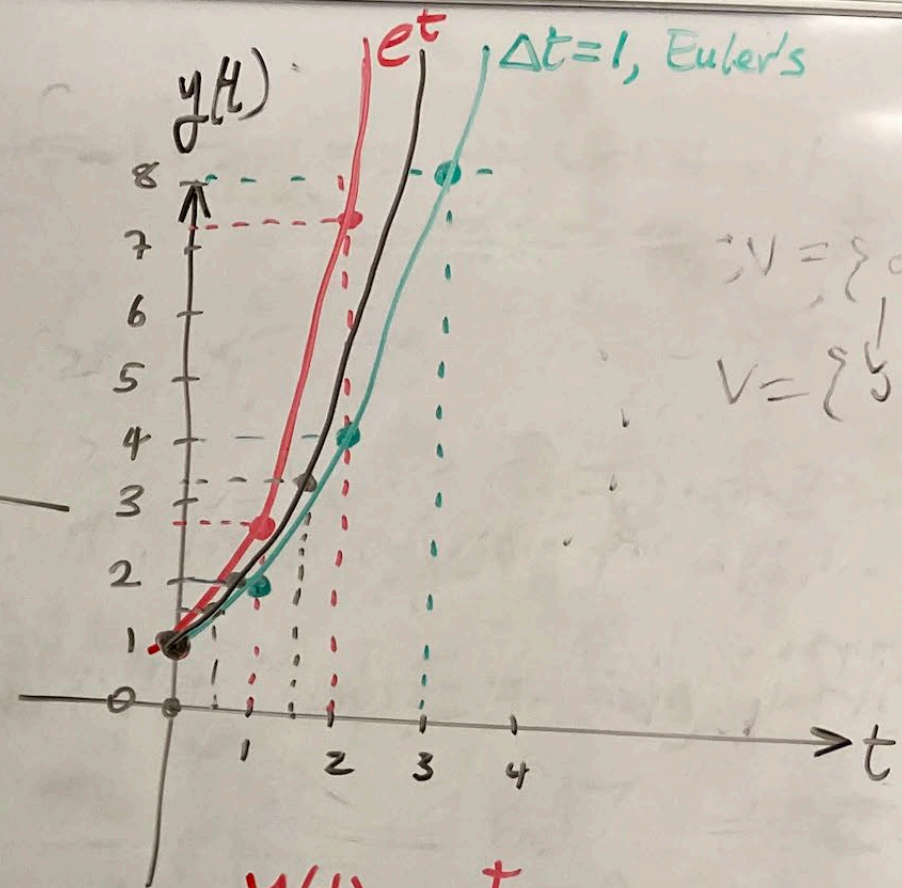 e^t
Δt=1, Euler's
y(t)
8
7
6
5
4
3
2
1
0
1 2 3 4
t
V={
V={